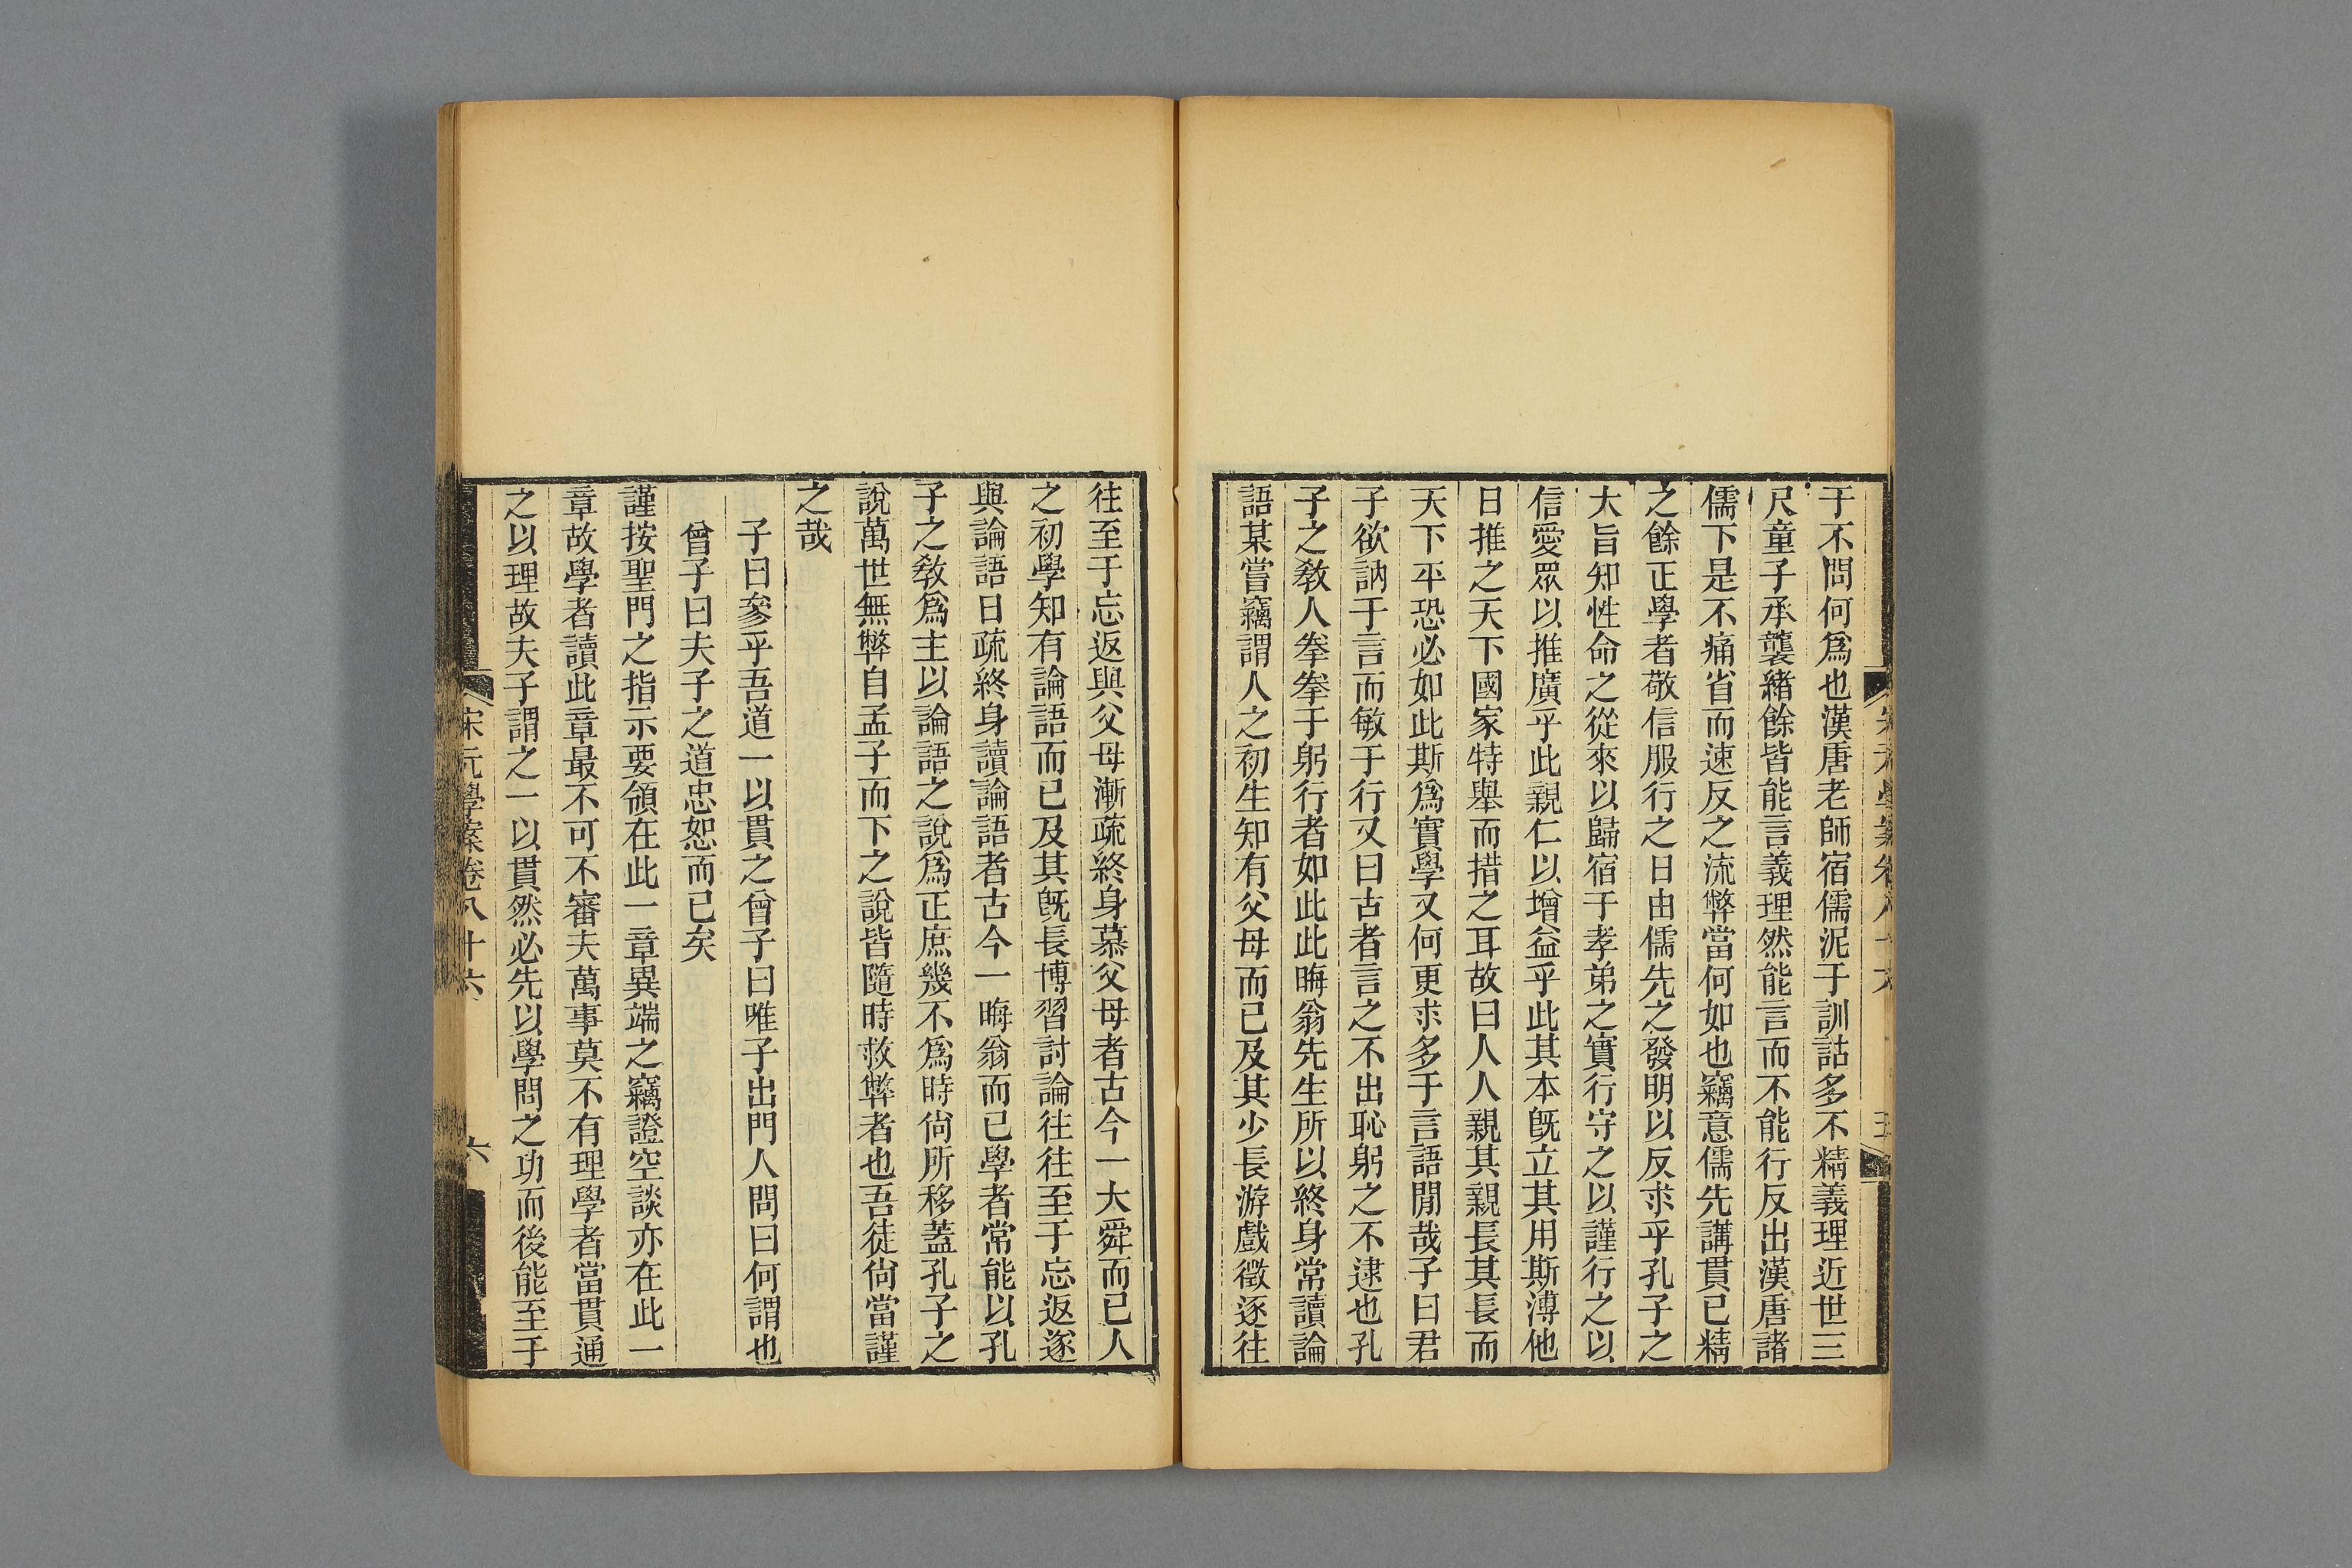 于不問何爲也漢唐老師宿儒泥于訓詁多不精義理近世三
尺童子承襲緒餘皆能言義理然能言而不能行反出漢唐諸
儒下是不痛省而速反之流弊當何如也竊意儒先講貫已精
之餘正學者敬信服行之日由儒先之發明以反求乎孔子之
大旨知性命之從來以歸宿于孝弟之實行守之以謹行之以
信愛眾以推廣乎此親仁以增益乎此其本既立其用斯溥他
日推之天下國家特舉而措之耳故曰人人親其親長其長而
天下平恐必如此斯爲實學又何更求多于言語閒哉子曰君
子欲訥于言而敏于行又曰古者言之不出恥躬之不逮也孔
子之敎人拳拳于躬行者如此此晦翁先生所以終身常讀論
語某嘗竊謂人之初生知有父母而已及其少長游戲徵逐往
往至于忘返與父母漸疏終身慕父母者古今一大舜而已人
之初學知有論語而已及其既長博習討論往往至于忘返遂
與論語日疏終身讀論語者古今一晦翁而已學者常能以孔
子之敎爲主以論語之說爲正庶幾不爲時尙所移蓋孔子之
說萬世無弊自孟子而下之說皆隨時救弊者也吾徒尙當謹
之哉
子曰參乎吾道一以貫之曾子曰唯子出門人問曰何謂也
曾子曰夫子之道忠恕而已矣
謹按聖門之指示要領在此一章異端之竊證空談亦在此一
章故學者讀此章最不可不審夫萬事莫不有理學者當貫通
之以理故夫子謂之一以貫然必先以學問之功而後能至于
宋元學案卷八十六
六